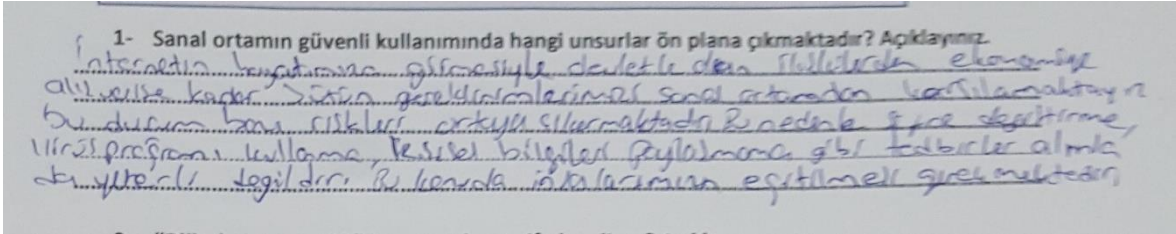 1- Sanal ortamın güvenli kullanımında hangi unsurlar ön plana çıkmaktadır? Açıklayınız.
İnternetin hayatımıza girmesiyle devletle olan ilişkilerden ekonomiye
alışverişe kadar bütün gereksinimlerimizi sanal ortamdan karşılamaktayız
bu durum bazı riskleri ortaya çıkarmaktadır Bu nedenle şifre değiştirme,
virüs programı kullanma, kişisel bilgileri paylaşmama gibi tedbirler almak
da yeterli değildir. Bu konuda eğitilmeli gerekmektedir.